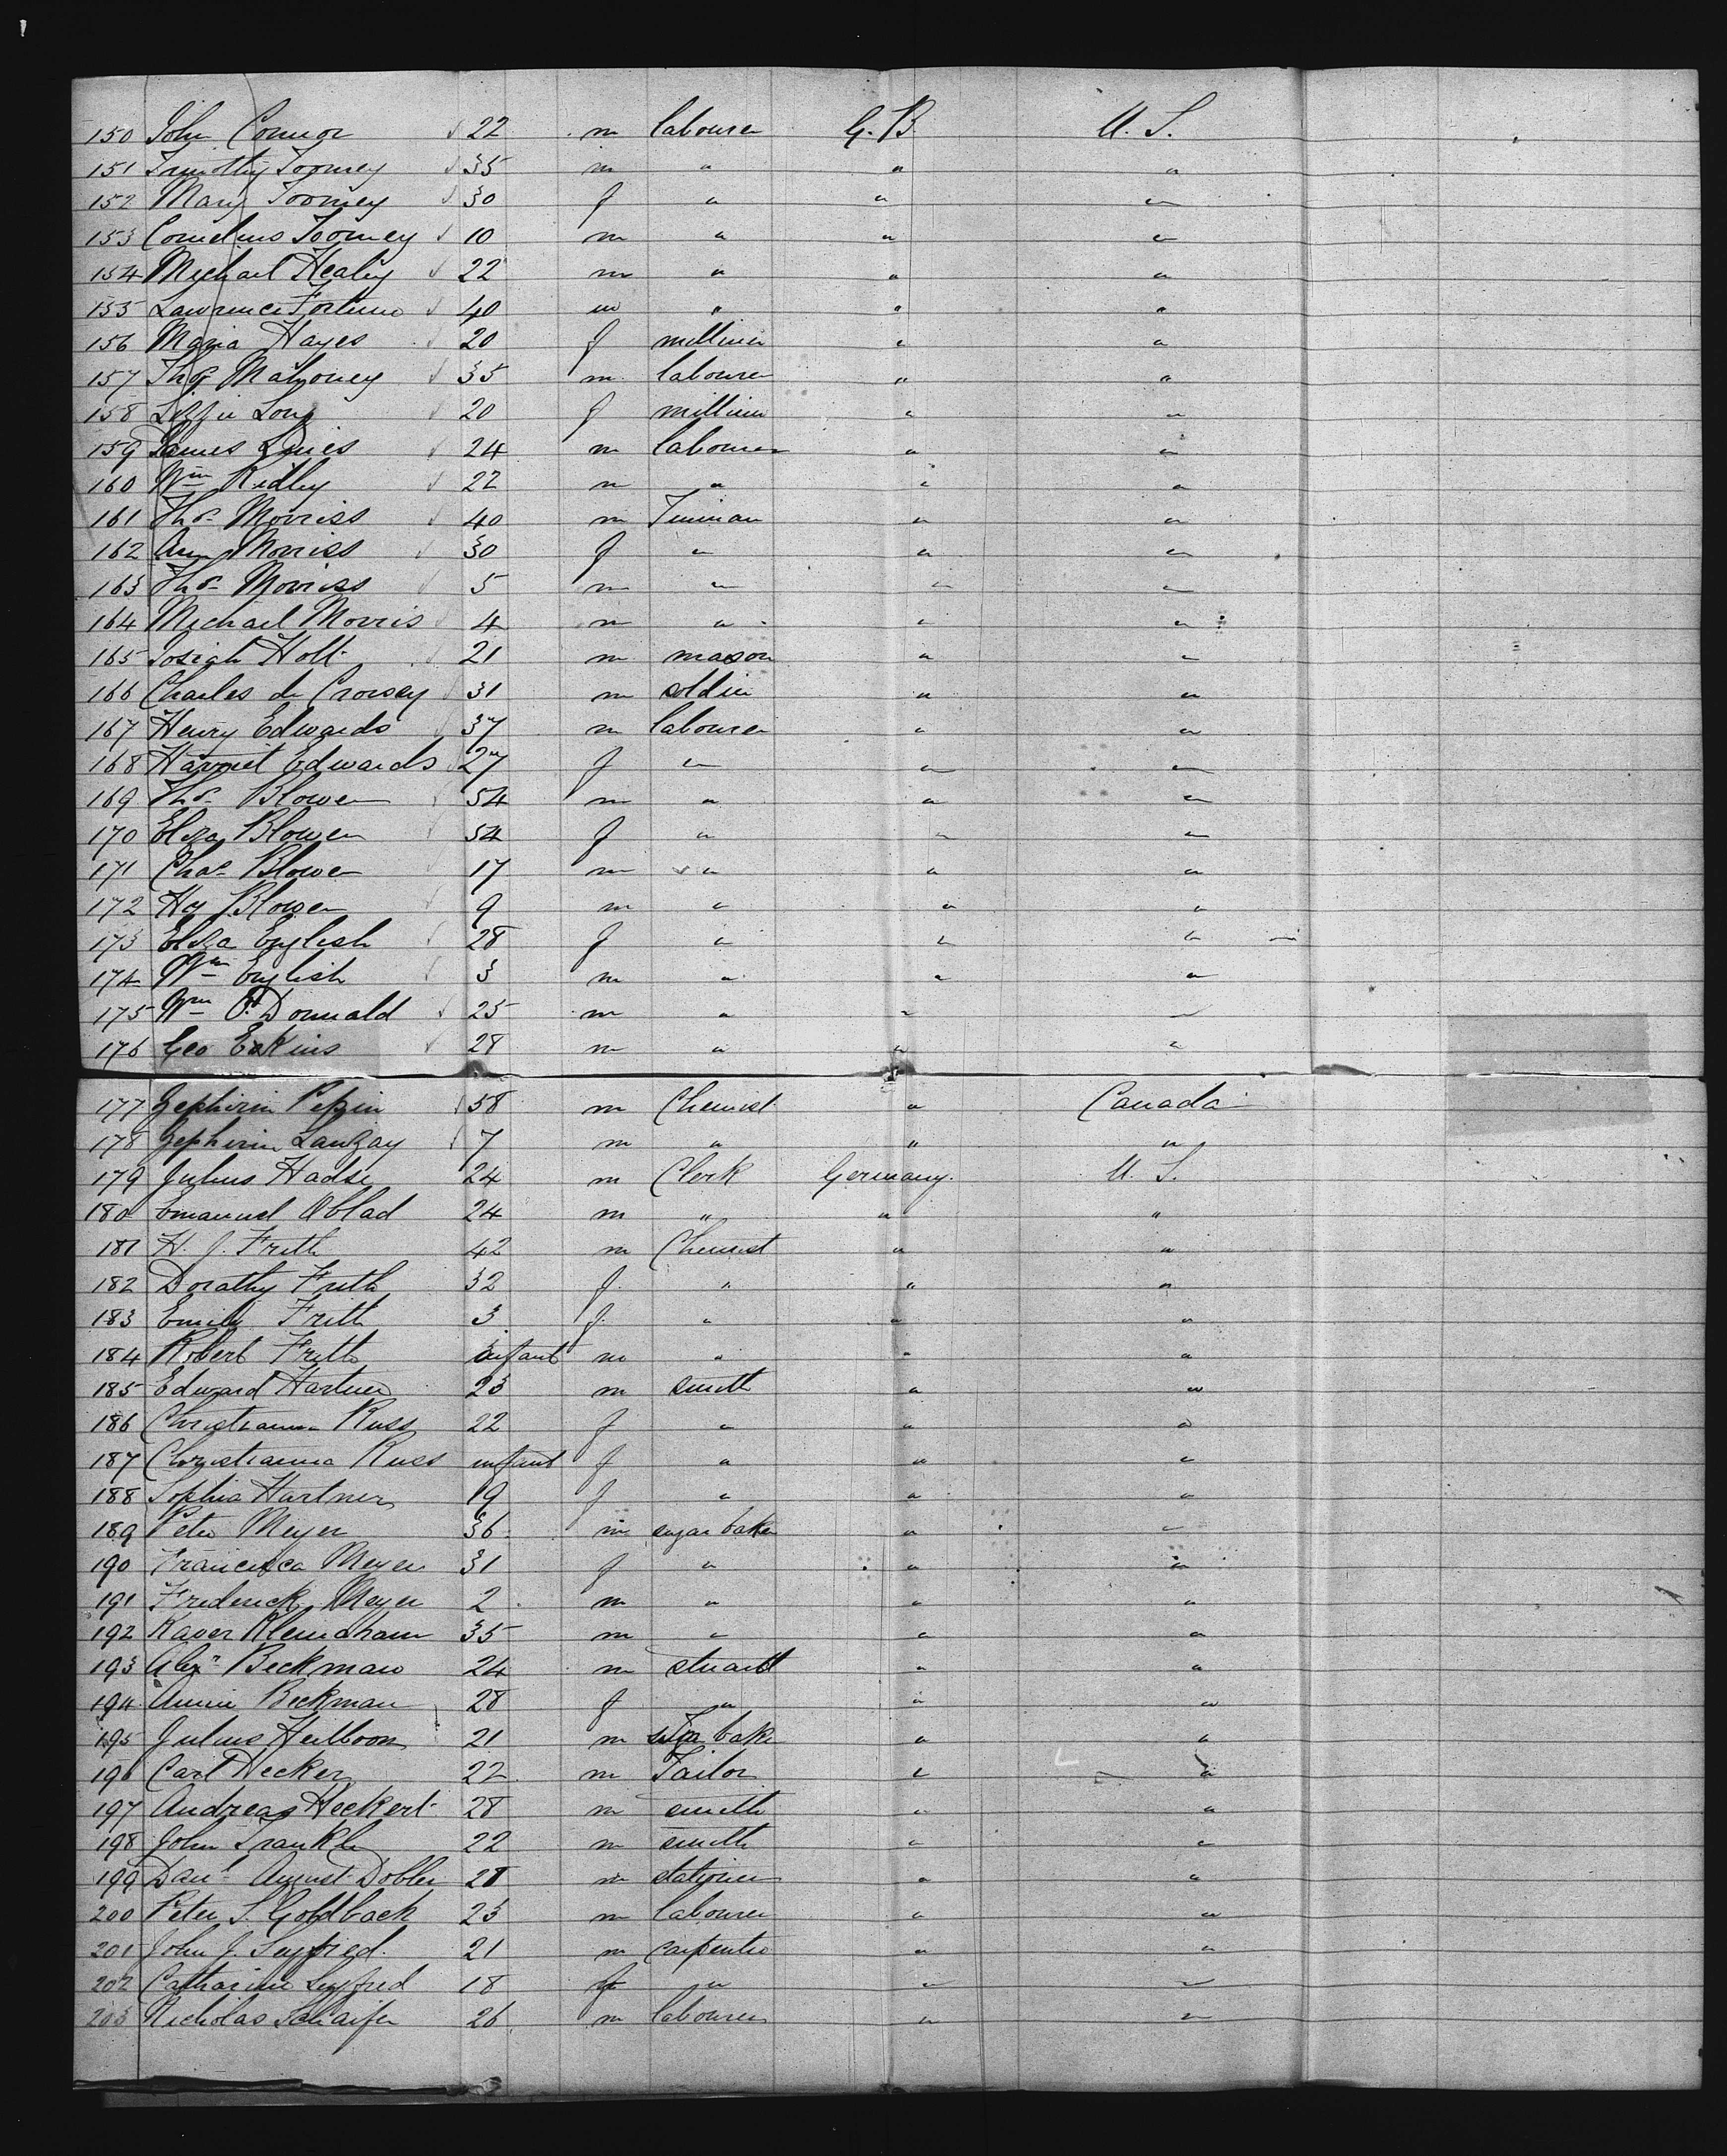 150 John Connor 22 m labourer G. B. U. S.
151 Timothy Toomey 35 m " " "
152 Mary Toomey 30 f " " "
153 Cornelius Toomey 10 m " " "
154 Michael Healey 22 m " " "
155 Lawrence Fortune 40 m " " "
156 Maria Hayes 20 f milliner " "
157 Thos Mahoney 35 m labourer " "
158 Lizzie Long 20 f milliner " "
159 James 24 m labourer " "
160 Wm Ridley 22 m " " "
161 Thos Morriss 40 m Tinman " "
162 Ann Morriss 30 f " " "
163 Thos Morriss 5 m " " "
164 Michael Morris 4 m " " "
165 Josiah Holt 21 m mason " "
166 Charles de Croisey 31 m soldier " "
167 Henry Edwards 37 m labourer " "
168 Harriet Edwards 27 f " " "
169 Thos Blower 54 m " " "
170 Eliza Blower 54 f " " "
171 Chas Blower 17 m " " "
172 Hy Blower 9 m " " "
173 Eliza English 28 f " " "
174 Wm English 3 m " " "
175 Wm O'Donnald 25 m " " "
176 Geo Eakins 28 m " " "
177 Zephirin Pepin 58 m Chemist " Canada
178 Zephirin Lauzay 7 m " " "
179 Julius Hadse 24 m Clerk Germany. U. S.
180 Emanuel Oblad 24 m " " "
181 H. J. Frith 42 m Chemist " "
182 Dorathy Frith 32 f " " "
183 Emily Frith 3 f " " "
184 Robert Frith infant m " " "
185 Edward Hartner 23 m smith " "
186 Christianna Russ 22 f " " "
187 Christianna Russ infant f " " "
188 Sophia Hartner 19 f " " "
189 Peter Meyer 36 m sugar baker " "
190 Francisca Meyer 31 f " " "
191 Frederick Meyer 2 m " " "
192 35 m " " "
193 Alexr Beckman 24 m " "
194 Annie Beckman 28 f " " "
195 Julius Heilboon 21 m baker " "
196 Carl Decker 22 m Tailor " "
197 Andreas Heckert 28 m smith " "
198 John Frankle 22 m smith " "
199 Danl August Dobler 28 m stationer " "
200 Peter S. Goldback 23 m labourer " "
201 John J. Seyfried. 21 m carpenter " "
202 Catharine Seyfried 18 f " " "
203 Nicholas Schaifer 26 m labourer " "